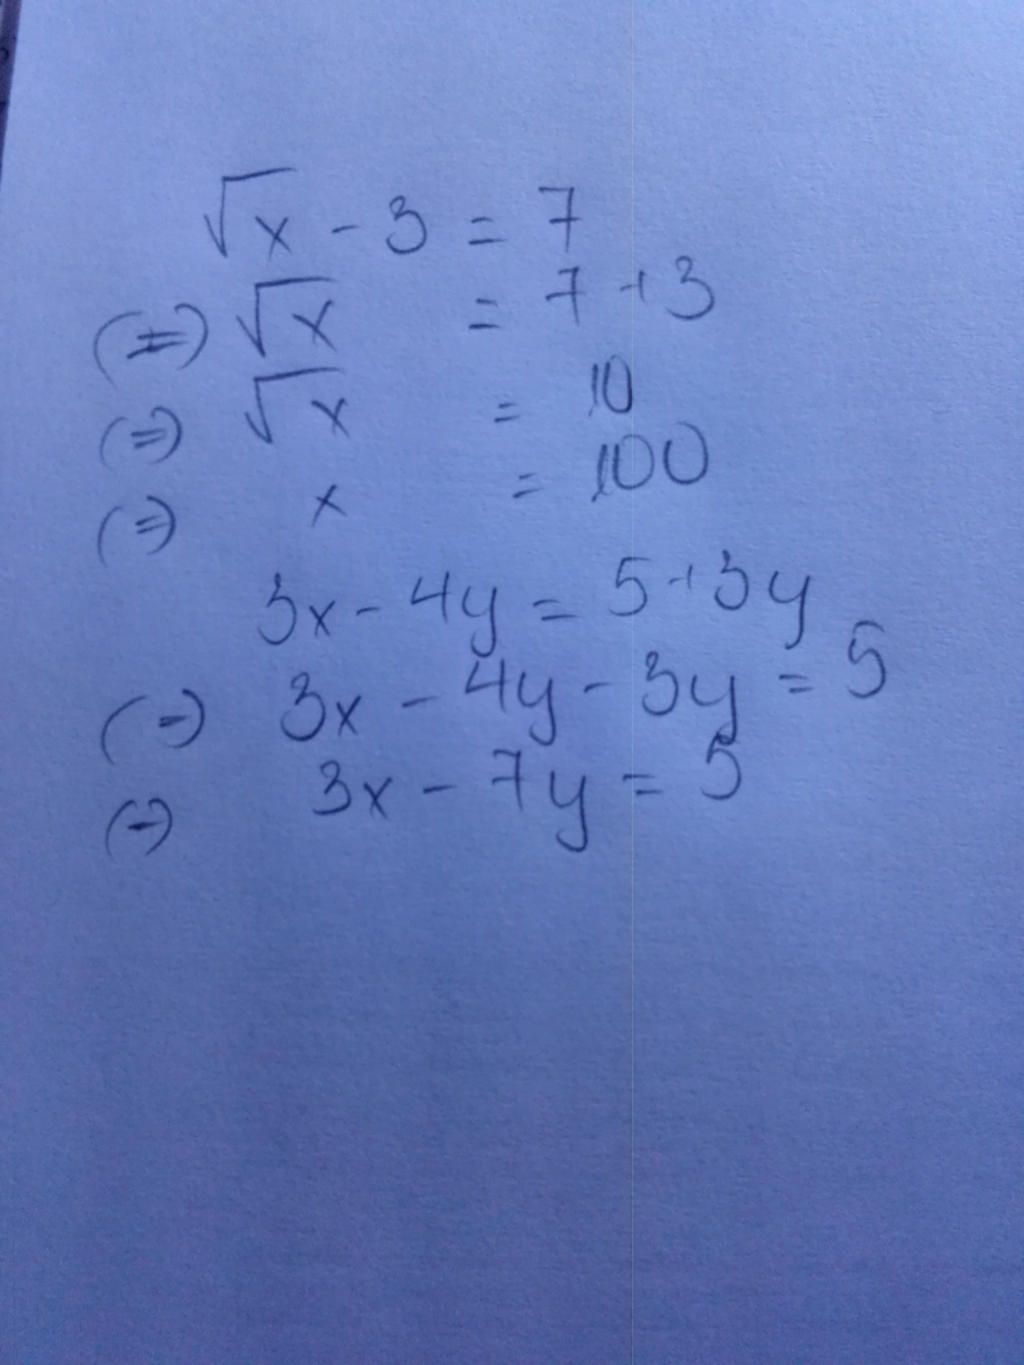 √x - 3 = 7
(=) √x = 7 + 3
(=) √x = 10
(=) x = 100
3x - 4y = 5 + 3y
(=) 3x - 4y - 3y = 5
(=) 3x - 7y = 5